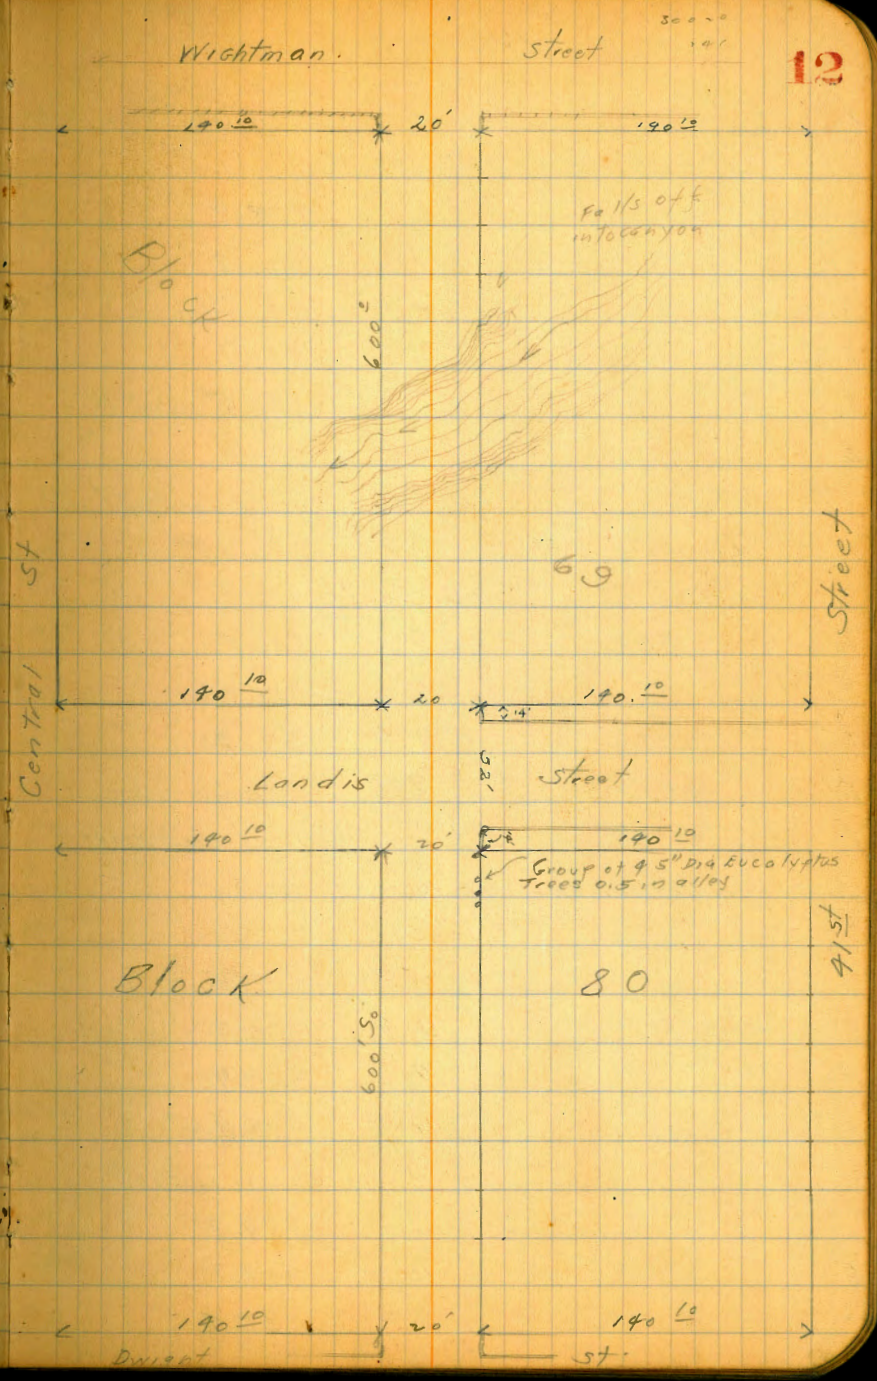 12
Wightman. Street
140 10 20' 190 10
Falls off
into canyon
Block
600
69
Central St
Street
140 10 20 140. 10
14'
52'
Landis Street
140 10 20' 140 10
Group of 4 5" Dia Eucalyptus
Trees 0.5 in alley
41st
Block 80
600' So
140 10 20' 140 10
Dwight St.